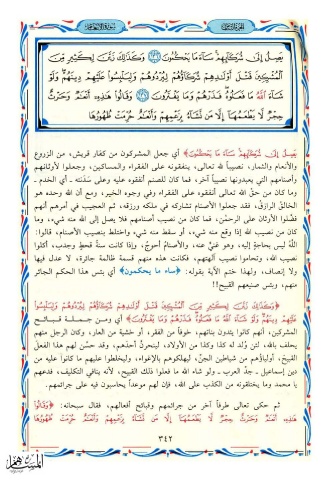 يَصِلُ إِلَىٰ شُرَكَآئِهِمْ سَآءَ مَا يَحْكُمُونَ ١٣٦ وَكَذَٰلِكَ زَيَّنَ لِكَثِيرٍ مِّنَ
ٱلْمُشْرِكِينَ قَتْلَ أَوْلَٰدِهِمْ شُرَكَآؤُهُمْ لِيُرْدُوهُمْ وَلِيَلْبِسُوا۟ عَلَيْهِمْ دِينَهُمْ وَلَوْ
شَآءَ ٱللَّهُ مَا فَعَلُوهُ فَذَرْهُمْ وَمَا يَفْتَرُونَ ١٣٧ وَقَالُوا۟ هَٰذِهِۦٓ أَنْعَٰمٌ وَحَرْثٌ
حِجْرٌ لَّا يَطْعَمُهَآ إِلَّا مَن نَّشَآءُ بِزَعْمِهِمْ وَأَنْعَٰمٌ حُرِّمَتْ ظُهُورُهَا
يَصِلُ إِلَىٰ شُرَكَآئِهِمْ سَآءَ مَا يَحْكُمُونَ﴾ أي جعل المشركون من كفار قريش، من الزروع
والأنعام والثمار، نصيباً لله تعالى، ينفقونه على الفقراء والمساكين، وجعلوا لأوثانهم
وأصنامهم التي يعبدونها نصيباً آخر، فما كان للصنم أنفقوه عليه وعلى سَدَنته ـ أي الخدم ـ
وما كان من حقِّ الله تعالى أنفقوه على الفقراء وفي وجوه الخير، ومع أن الله وحده هو
الخالقُ الرازقُ، فقد جعلوا الأصنام تشاركه في ملكه ورزقه، ثم العجيب في أمرهم أنهم
فضَّلوا الأوثان على الرحمن، فما كان من نصيب أصنامهم فلا يصل إلى الله منه شيء، وما
كان من نصيب الله إذا وقع منه شيء، أو سقط منه شيء واختلط بنصيب الأصنام، قالوا:
اللَّهُ ليس بحاجةٍ إليه، وهو غنيٌّ عنه، والأصنامُ أحوجُ، وإذا كانت سنةُ قحطٍ وجدبٍ، أكلوا
نصيب الله، وتحاموا نصيب آلهتهم، فكانت هذه منهم قسمة ظالمة جائرة، لا عدل فيها
ولا إنصاف، ولهذا ختم الآية بقوله: ﴿ساء ما يحكمون﴾ أي بئس هذا الحكم الجائر
منهم، وبئس صنيعهم القبيح!!
﴿وَكَذَٰلِكَ زَيَّنَ لِكَثِيرٍ مِّنَ ٱلْمُشْرِكِينَ قَتْلَ أَوْلَٰدِهِمْ شُرَكَآؤُهُمْ لِيُرْدُوهُمْ وَلِيَلْبِسُوا۟
عَلَيْهِمْ دِينَهُمْ وَلَوْ شَآءَ ٱللَّهُ مَا فَعَلُوهُ فَذَرْهُمْ وَمَا يَفْتَرُونَ﴾ أي ومن جملة قبائح
المشركين، أنهم كانوا يئدون بناتهم، خوفاً من الفقر، أو خشية من العار، وكان الرجل منهم
يحلف بالله، لئن وُلد له كذا وكذا من الأولاد، لينحرنَّ أحدهم، وقد حسَّن لهم هذا الفعل
القبيح، أولياؤُهم من شياطين الجنِّ، ليهلكوهم بالإغواء، وليخلطوا عليهم ما كانوا عليه من
دين إسماعيل ـ جدِّ العرب ـ ولو شاء الله ما فعلوا ذلك القبيح، لأنه ينافي التكليف، فدعهم
يا محمد وما يختلقونه من الكذب على الله، فإن لهم موعداً يحاسبون فيه على جرائمهم.
ثم حكى تعالى طرفاً آخر من جرائمهم وقبائح أفعالهم، فقال سبحانه: ﴿وَقَالُوا۟
هَٰذِهِۦٓ أَنْعَٰمٌ وَحَرْثٌ حِجْرٌ لَّا يَطْعَمُهَآ إِلَّا مَن نَّشَآءُ بِزَعْمِهِمْ وَأَنْعَٰمٌ حُرِّمَتْ ظُهُورُهَا
٣٤٢